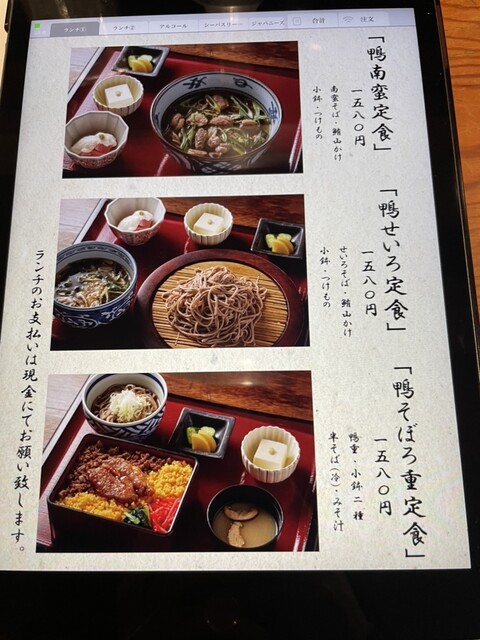 ランチ① ランチ② アルコール シーバスリー… ジャパニーズ… 合計 注文
「鴨南蛮定食」
一五八〇円
南蛮そば・鮪山かけ
小鉢・つけもの
「鴨せいろ定食」
一五八〇円
せいろそば・鮪山かけ
小鉢・つけもの
「鴨そぼろ重定食」
一五八〇円
鴨重・小鉢二種
半そば(冷)・みそ汁
ランチのお支払いは現金にてお願い致します。